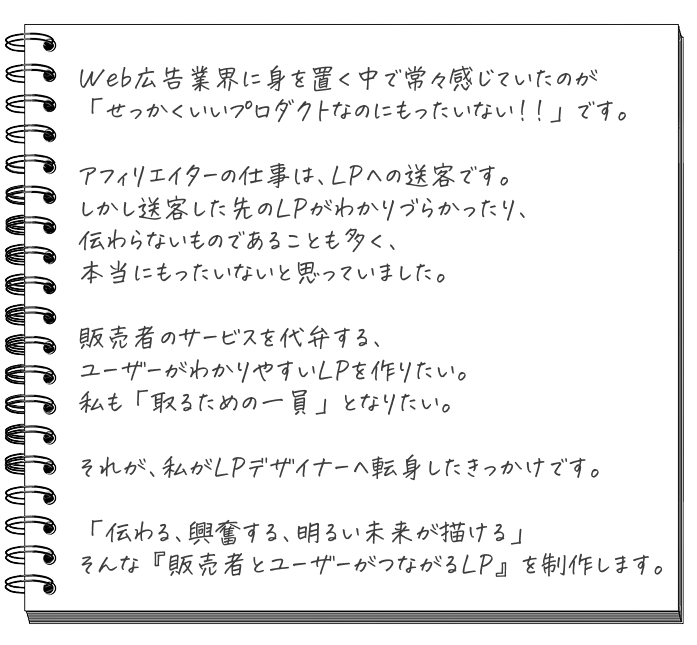 Web広告業界に身を置く中で常々感じていたのが
「せっかくいいプロダクトなのにもったいない！！」です。
アフィリエイターの仕事は、LPへの送客です。
しかし送客した先のLPがわかりづらかったり、
伝わらないものであることも多く、
本当にもったいないと思っていました。
販売者のサービスを代弁する、
ユーザーがわかりやすいLPを作りたい。
私も「取るための一員」となりたい。
それが、私がLPデザイナーへ転身したきっかけです。
「伝わる、興奮する、明るい未来が描ける」
そんな『販売者とユーザーがつながるLP』を制作します。